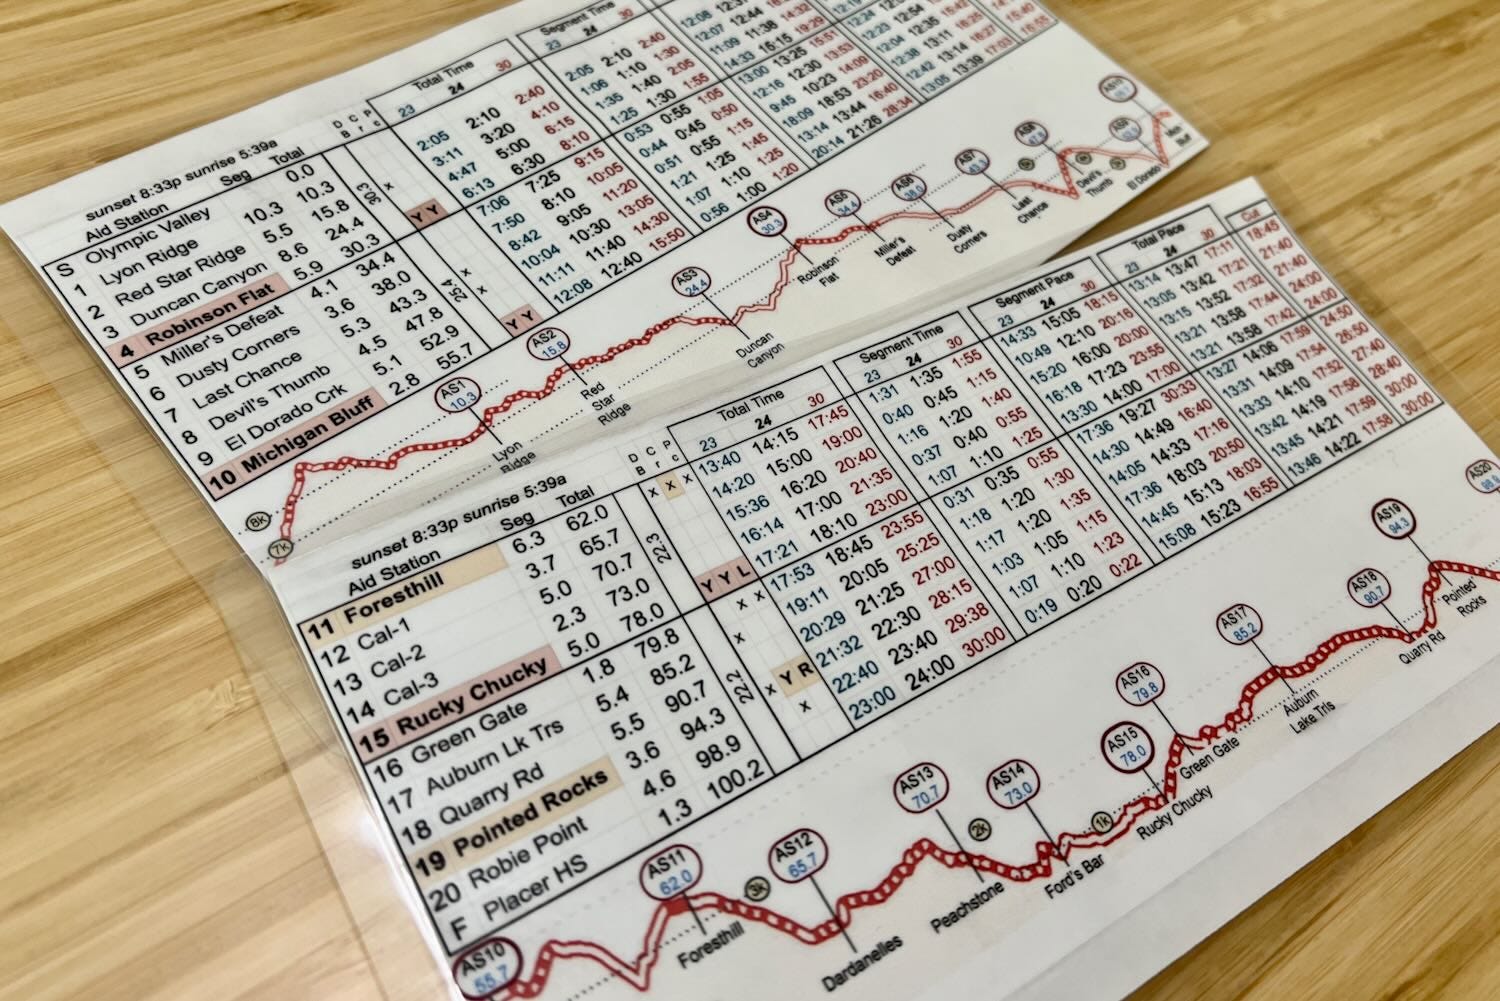 sunset 8:33p sunrise 5:39a
Total Time Segment Time
Aid Station Seg Total DB Cr Pc 23 24 30 23 24 30
S Olympic Valley 0.0
1 Lyon Ridge 10.3 10.3 2:05 2:10 2:40 2:05 2:10 2:40 12:08
2 Red Star Ridge 5.5 15.8 x 3:11 3:20 4:10 1:06 1:10 1:30 12:07 12:44
3 Duncan Canyon 8.6 24.4 4:47 5:00 6:15 1:35 1:40 2:05 11:09 11:38 14:32 12:23 12:54
4 Robinson Flat 5.9 30.3 Y Y 6:13 6:30 8:10 1:25 1:30 1:55 14:33 16:15 19:29 12:04 12:35
5 Miller's Defeat 4.1 34.4 7:06 7:25 9:15 0:53 0:55 1:05 13:00 13:25 15:51 12:38 13:11 16:25
6 Dusty Corners 3.6 38.0 x 7:50 8:10 10:05 0:44 0:45 0:50 12:16 12:30 13:53 12:42 13:14 16:27
7 Last Chance 5.3 43.3 x 8:42 9:05 11:20 0:51 0:55 1:15 9:45 10:23 14:09 13:05 13:39 17:03
8 Devil's Thumb 4.5 47.8 10:04 10:30 13:05 1:21 1:25 1:45 18:09 18:53 23:20
9 El Dorado Crk 5.1 52.9 11:11 11:40 14:30 1:07 1:10 1:25 13:14 13:44 16:40
10 Michigan Bluff 2.8 55.7 Y Y 12:08 12:40 15:50 0:56 1:00 1:20 20:14 21:26 28:34
30.3
25.4
7k
8k
AS1 10.3
Lyon Ridge
AS2 15.8
Red Star Ridge
AS3 24.4
Duncan Canyon
AS4 30.3
Robinson Flat
AS5 34.4
Miller's Defeat
AS6 38.0
Dusty Corners
AS7 43.3
Last Chance
AS8
Devil's Thumb
AS9
El Dorado
AS10
sunset 8:33p sunrise 5:39a
Total Time Segment Time Segment Pace Total Pace Cut
Aid Station Seg Total DB Cr Pc 23 24 30 23 24 30 23 24 30 23 24 30
11 Foresthill 6.3 62.0 x x x 13:40 14:15 17:45 1:31 1:35 1:55 14:33 15:05 18:15 13:14 13:47 17:11 18:45
12 Cal-1 3.7 65.7 14:20 15:00 19:00 0:40 0:45 1:15 10:49 12:10 20:16 13:05 13:42 17:21 21:40
13 Cal-2 5.0 70.7 15:36 16:20 20:40 1:16 1:20 1:40 15:20 16:00 20:00 13:15 13:52 17:32 21:40
14 Cal-3 2.3 73.0 16:14 17:00 21:35 0:37 0:40 0:55 16:18 17:23 23:55 13:21 13:58 17:44 24:00
15 Rucky Chucky 5.0 78.0 Y Y L 17:21 18:10 23:00 1:07 1:10 1:25 13:30 14:00 17:00 13:21 13:58 17:42 24:00
16 Green Gate 1.8 79.8 x x 17:53 18:45 23:55 0:31 0:35 0:55 17:36 19:27 30:33 13:27 14:06 17:59 24:50
17 Auburn Lk Trs 5.4 85.2 x 19:11 20:05 25:25 1:18 1:20 1:30 14:30 14:49 16:40 13:31 14:09 17:54 26:50
18 Quarry Rd 5.5 90.7 20:29 21:25 27:00 1:17 1:20 1:35 14:05 14:33 17:16 13:33 14:10 17:52 27:40
19 Pointed Rocks 3.6 94.3 x Y R 21:32 22:30 28:15 1:03 1:05 1:15 17:36 18:03 20:50 13:42 14:19 17:58 28:40
20 Robie Point 4.6 98.9 x 22:40 23:40 29:38 1:07 1:10 1:23 14:45 15:13 18:03 13:45 14:21 17:59 30:00
F Placer HS 1.3 100.2 23:00 24:00 30:00 0:19 0:20 0:22 15:08 15:23 16:55 13:46 14:22 17:58 30:00
22.3
22.2
AS10 55.7
AS11 62.0
Foresthill
3k
AS12 65.7
Dardanelles
AS13 70.7
Peachstone
2k
AS14 73.0
Ford's Bar
1k
AS15 78.0
Rucky Chucky
AS16 79.8
Green Gate
AS17 85.2
Auburn Lake Trls
AS18 90.7
Quarry Rd
AS19 94.3
Pointed Rocks
AS20